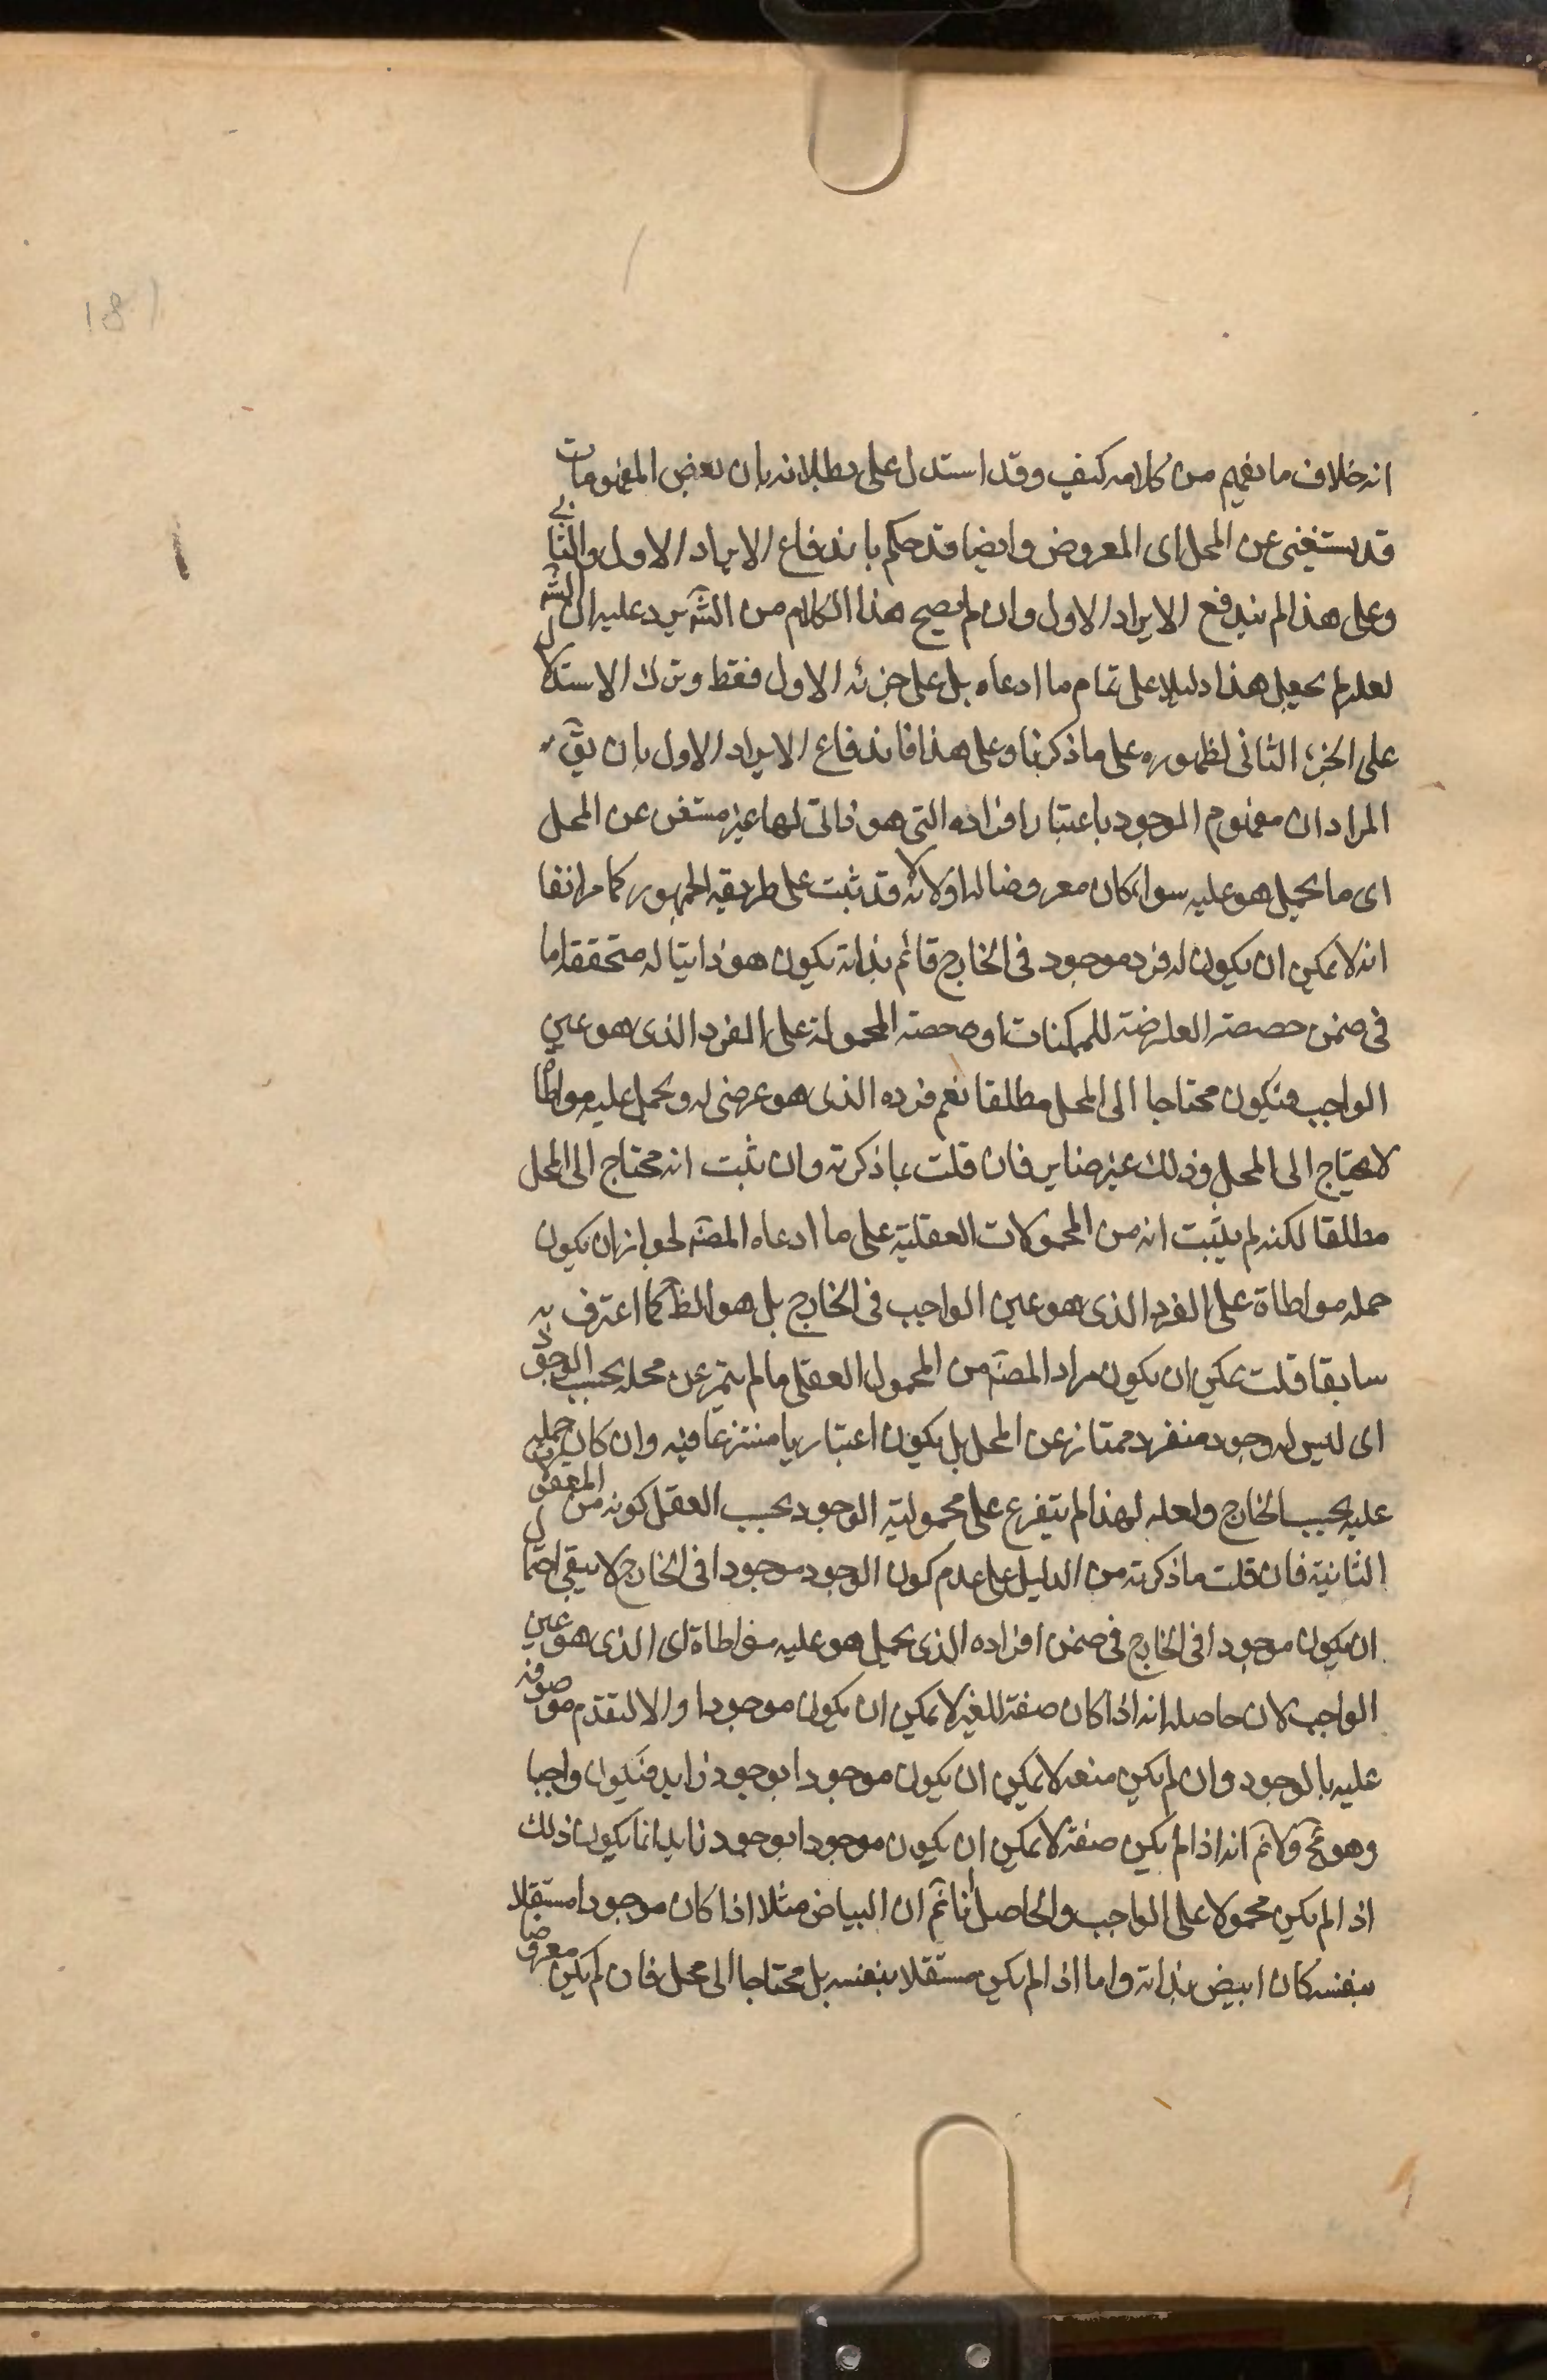 18)
انه خلاف ما يفهم من كلامه كيف وقد استدل على بطلانه بان بعض المفهومات
قد يستغنى عن المحل اى المعروض وايضا قد حكم باندفاع الايراد الاول والثانى
وعلى هذا لم يندفع الايراد الاول وان لم يصح هذا الكلام من الشّ يرد عليه ان الشّ
لعله لم يجعل هذا دليلا على تمام ما ادعاه بل على جزئه الاول فقط وترك الاستدلال
على الجزء الثانى لظهوره على ما ذكرنا وعلى هذا فاندفاع الايراد الاول بان يقّ
المراد ان مفهوم الوجود باعتبار افراده التى هو ذاتى لها غير مستغن عن المحل
اى ما يحمل هو عليه سواء كان معروضا لها اولا لانه قد ثبت على طريقة الجمهور كما مر انفا
انه لا يمكن ان يكون له فرد موجود فى الخارج قائم بذاته يكون هو ذاتيا له متحققا ما
فى ضمن حصصه العارضة للممكنات او حصته المحمولة على الفرد الذى هو عين
الواجب فيكون محتاجا الى المحل مطلقا نعم فرده الذى هو عرضى له ويحمل عليه مواطاة
لا يحتاج الى المحل وذلك غير ضاير فان قلت بما ذكرته وان ثبت انه محتاج الى المحل
مطلقا لكنه لم يثبت انه من المحمولات العقلية على ما ادعاه المصّ لجواز ان يكون
حمله مواطاة على الفرد الذى هو عين الواجب فى الخارج بل هو الظّ كما اعترف به
سابقا قلت يمكن ان يكون مراد المصّ من المحمول العقلى ما لم يتميز عن محله بحسب الوجود
اى ليس له وجود منفرد ممتاز عن المحل بل يكون اعتباريا منتزعا فيه وان كان حمله
عليه بحسب الخارج ولعله لهذا لم يتفرع على محمولية الوجود بحسب العقل كونه من المعقولات
الثانية فان قلت ما ذكرته من الدليل على عدم كون الوجود موجودا فى الخارج لا يبقى احتمال
ان يكون موجودا فى الخارج فى ضمن افراده الذى يحمل هو عليه مواطاة اى الذى هو عين
الواجب لان حاصله انه اذا كان صفة للغير لا يمكن ان يكون موجودا والا لتقدم موصوفه
عليه بالوجود وان لم يكن صفة لا يمكن ان يكون موجودا بوجود زايد فيكون واجبا
وهو مّح ولا نّم انه اذا لم يكن صفة لا يمكن ان يكون موجودا بوجود زايد انما يكون ذلك
اذا لم يكن محمولا على الواجب والحاصل انا نّم ان البياض مثلا اذا كان موجودا مستقلا
بنفسه كان ابيض بذاته واما اذا لم يكن مستقلا بنفسه بل محتاجا الى محل فان لم يكن معروضا